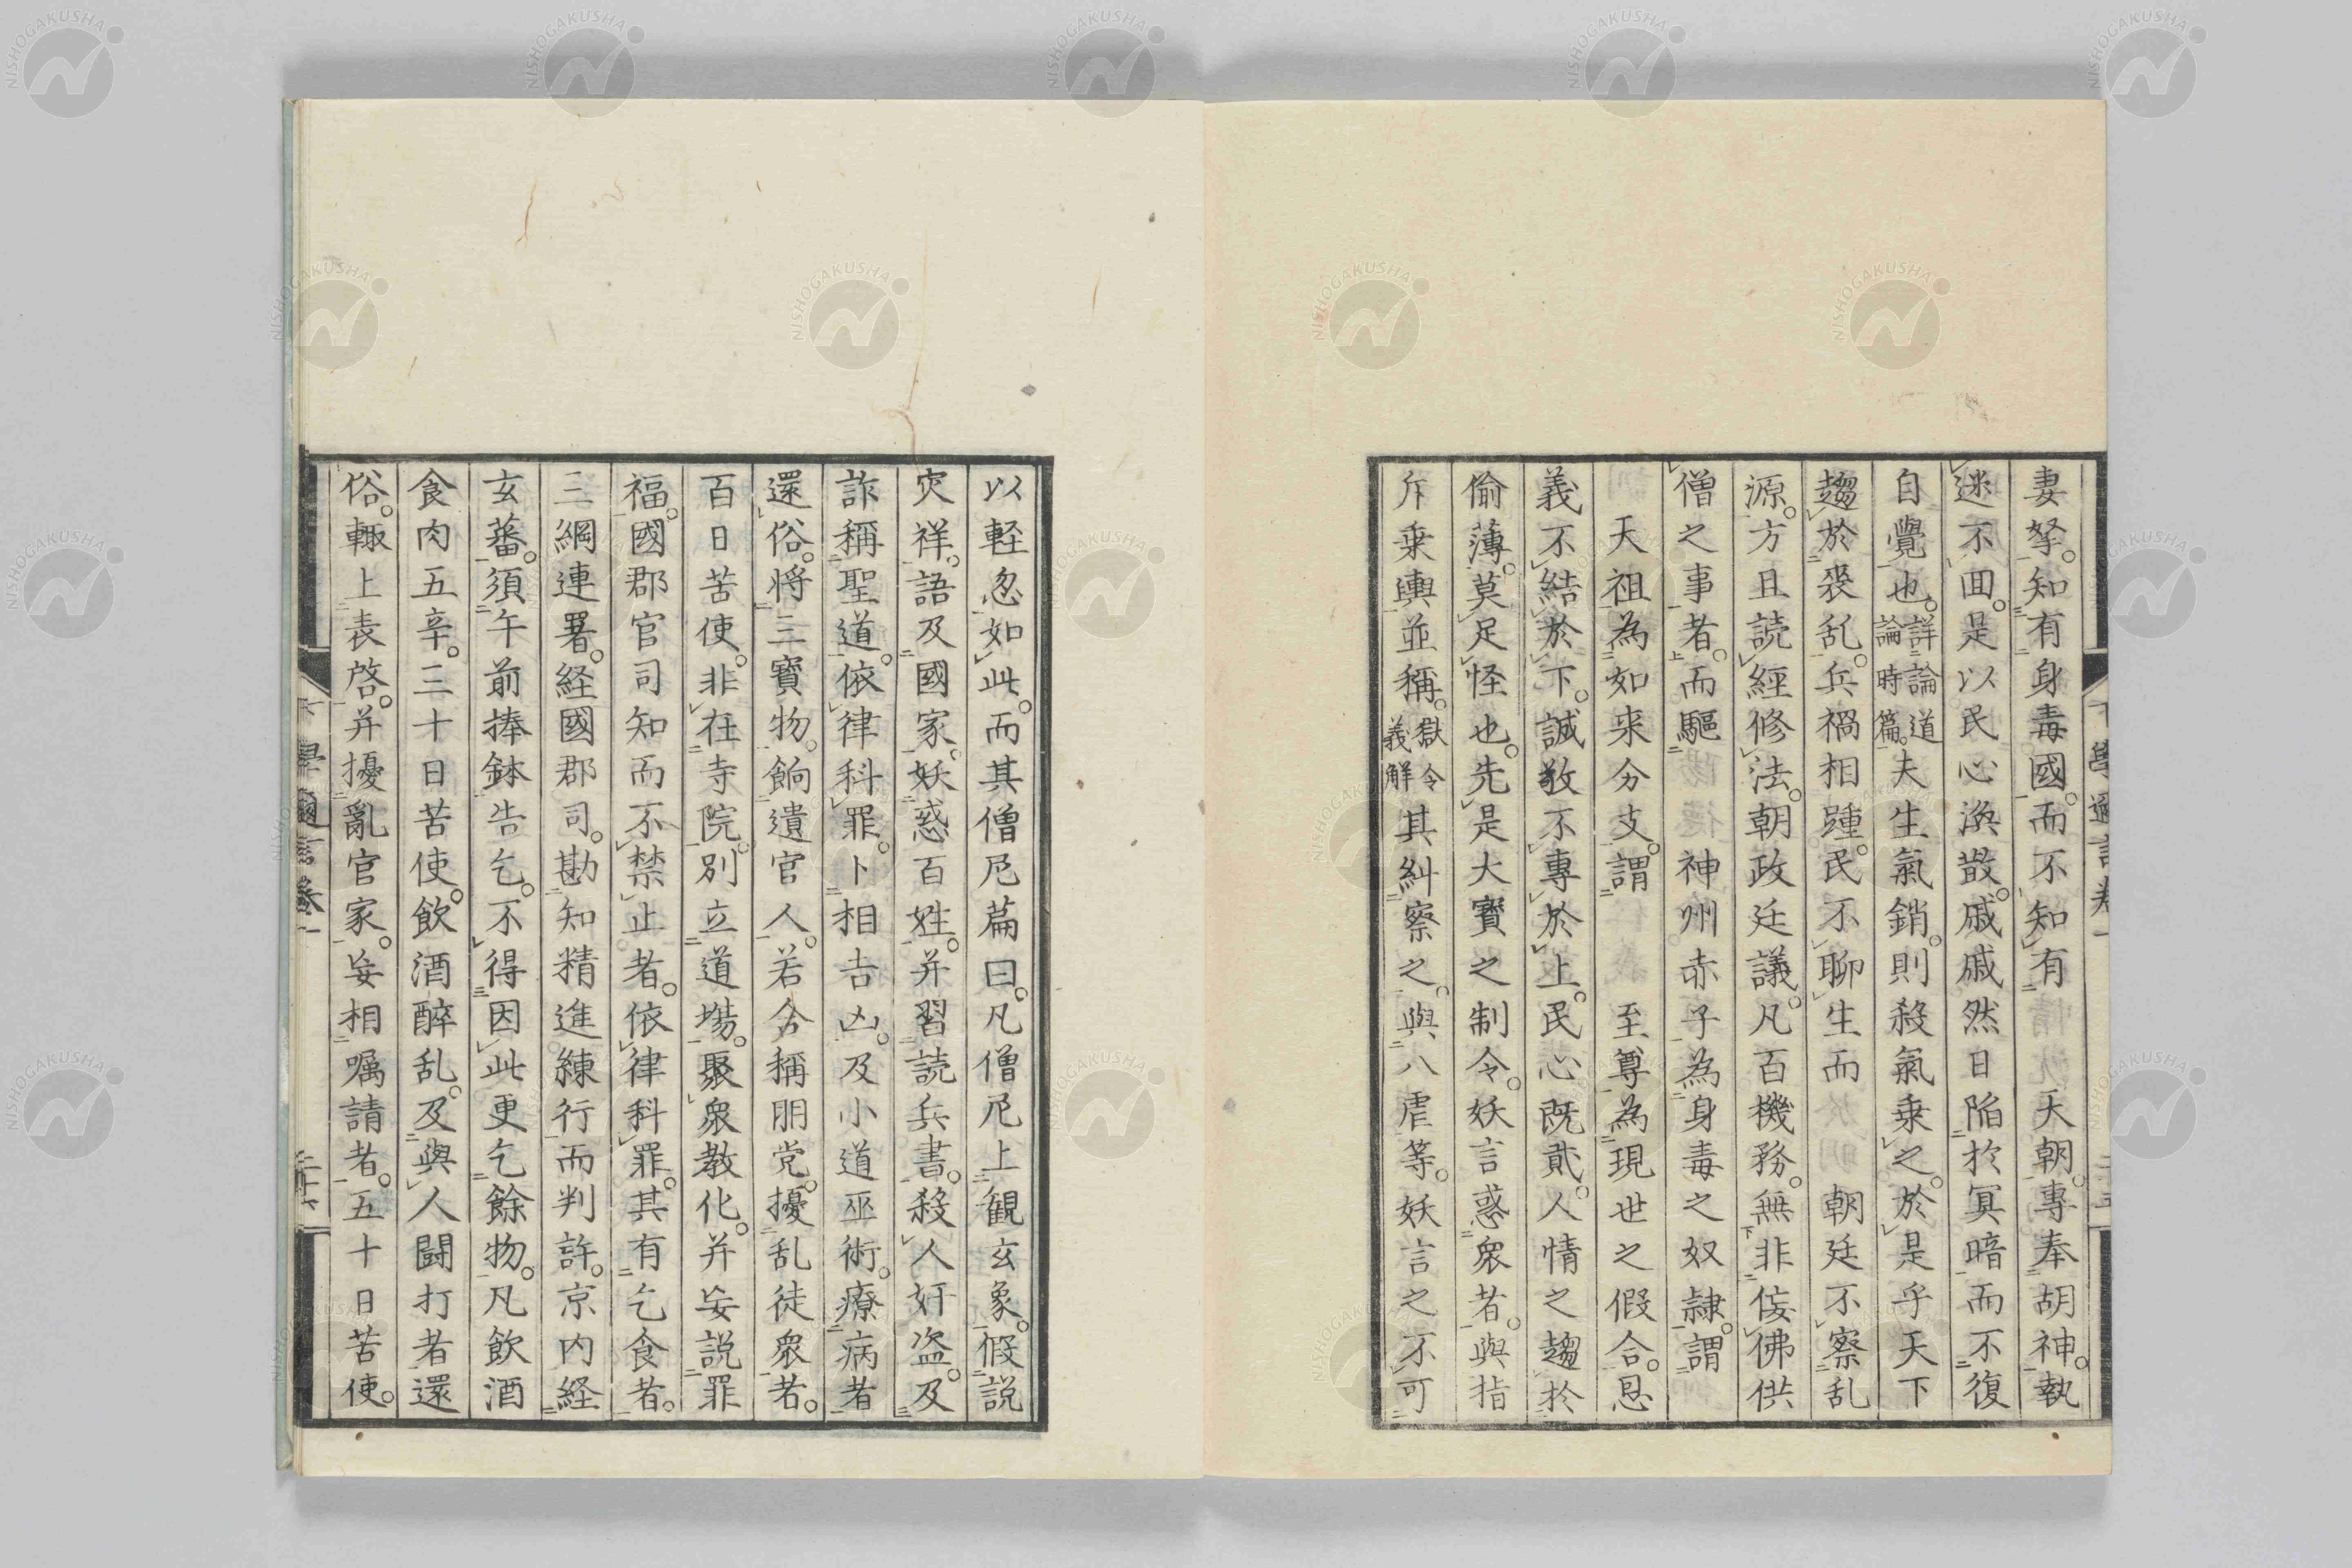 妻孥。知有身毒國。而不知有　天朝。專奉胡神。執
迷不回。是以民心渙散。戚戚然日陥於冥暗而不復
自覺也。詳論道論時篇。夫生氣銷。則殺氣乗之。於是乎天下
趨於衰乱。兵禍相踵。民不聊生而　朝廷不察乱
源。方且読經修法。朝政廷議。凡百機務。無非佞佛供
僧之事者。而驅　神州赤子為身毒之奴隷。謂
天祖為如来分支。謂　至尊為現世之假合。恩
義不結於下。誠敬不專於上。民心既貳。人情之趨於
偷薄。莫足怪也。先是大寶之制令。妖言惑衆者。與指
斥乗輿並稱。獄令義解其糾察之。與八虐等。妖言之不可
以軽忽如此。而其僧尼篇曰。凡僧尼上観玄象。假説
灾祥。語及國家。妖惑百姓。并習読兵書。殺人奸盗。及
詐稱聖道。依律科罪。卜相吉凶。及小道巫術。療病者
還俗。将三寶物。餉遺官人。若合稱朋党。擾乱徒衆者。
百日苦使。非在寺院。別立道塲。聚衆教化。并妄説罪
福。國郡官司知而不禁止者。依律科罪。其有乞食者。
三綱連署。経國郡司。勘知精進練行而判許。京内経
玄蕃。須午前捧鉢告乞。不得因此更乞餘物。凡飲酒
食肉五辛。三十日苦使。飲酒醉乱。及與人闘打者還
俗。輙上表啓。并擾亂官家。妄相嘱請者。五十日苦使。
NISHOGAKUSHA